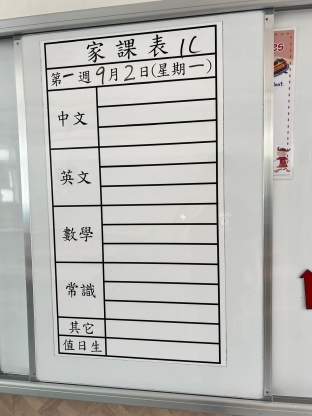 家課表 1C
第一週 9月2日(星期一)
中文
英文
數學
常識
其它
值日生